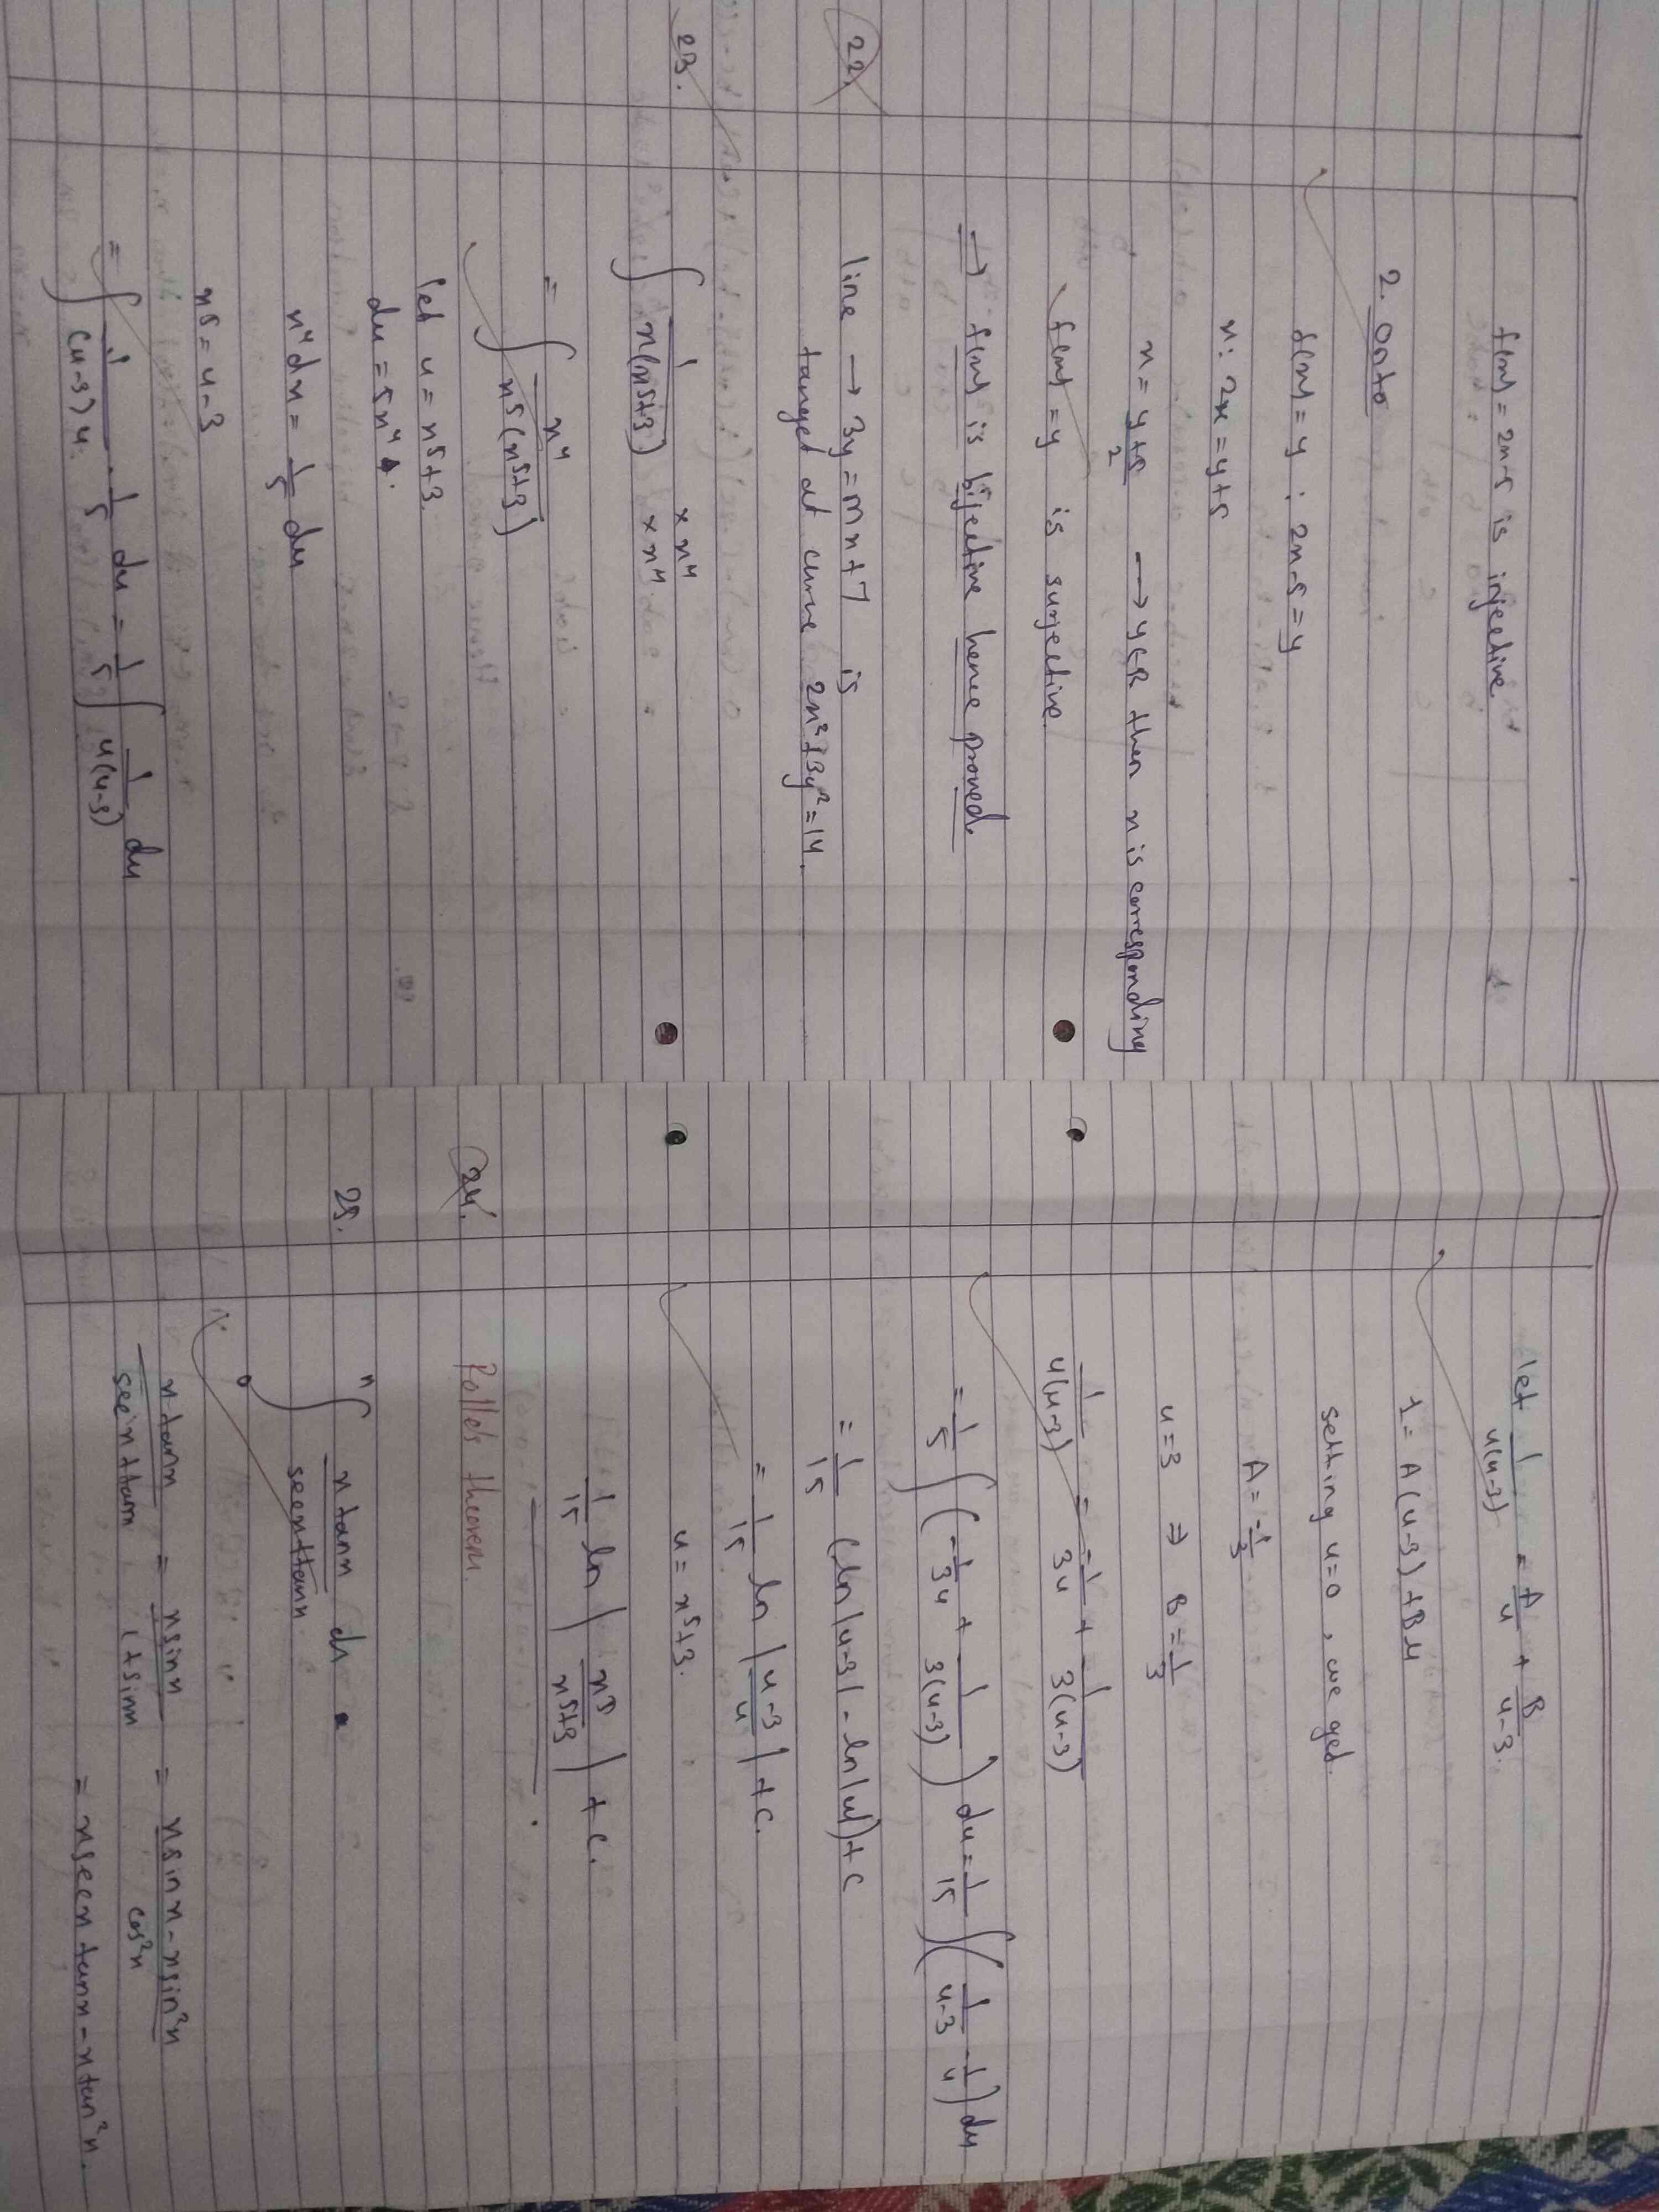 f(x) = 2x-5 is injective.
2. Onto
f(x) = y : 2x-5 = y
x: 2x = y+5
x = y+5/2 → y∈R then x is corresponding
f(x) = y is surjective.
⇒ f(x) is bijective hence proved.
22. line → 3y = mx+7 is
tanget at curve 2x²+3y²=14.
23. ∫ 1/x(x⁵+3) × x⁴/× x⁴
= ∫ x⁴/x⁵(x⁵+3)
let u = x⁵+3.
du = 5x⁴.
x⁴dx = 1/5 du
x⁵ = u-3
= ∫ 1/(u-3)u · 1/5 du = 1/5 ∫ 1/u(u-3) du
let 1/u(u-3) = A/u + B/u-3.
1 = A(u-3)+Bu
setting u=0, we get.
A = -1/3
u=3 ⇒ B = 1/3
1/u(u-3) = -1/3u + 1/3(u-3)
= 1/5 ∫ (-1/3u + 1/3(u-3)) du = 1/15 ∫ (1/u-3 - 1/u) du
= 1/15 (ln|u-3| - ln|u|)+c
= 1/15 ln |u-3/u| + c.
u = x⁵+3.
1/15 ln |x⁵/x⁵+3| + c.
24. Rolle's theorem.
25. ∫₀^π x tanx/secx+tanx dx
x tanx/secx+tanx = x sinx/1+sinx = x sinx - x sin²x/cos²x
= x secx tanx - x tan²x.